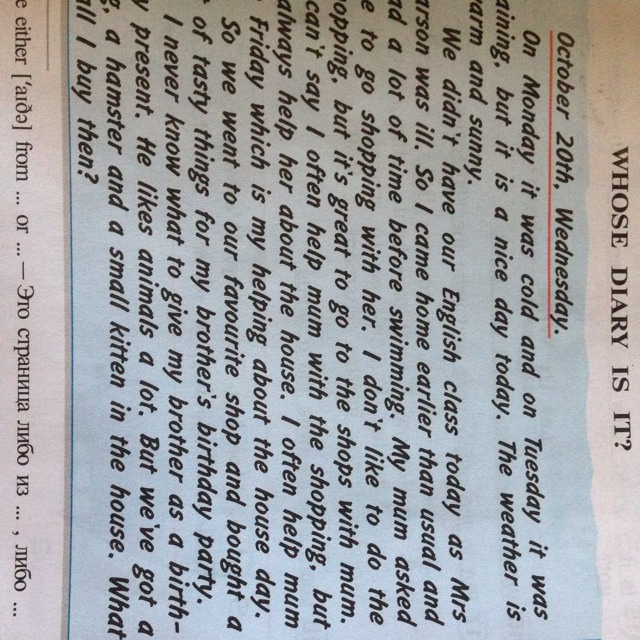 WHOSE DIARY IS IT?
October 20th, Wednesday.
On Monday it was cold and on Tuesday it was
aining, but it is a nice day today. The weather is
arm and sunny.
We didn't have our English class today as Mrs
arson was ill. So I came home earlier than usual and
ad a lot of time before swimming. My mum asked
e to go shopping with her. I don't like to do the
opping, but it's great to go to the shops with mum.
can't say I often help mum with the shopping, but
always help her about the house. I often help mum
Friday which is my helping about the house day.
So we went to our favourite shop and bought a
of tasty things for my brother's birthday party.
I never know what to give my brother as a birth-
y present. He likes animals a lot. But we've got a
g, a hamster and a small kitten in the house. What
all I buy then?
e either ['aɪðə] from ... or ... — Это страница либо из ... , либо ...